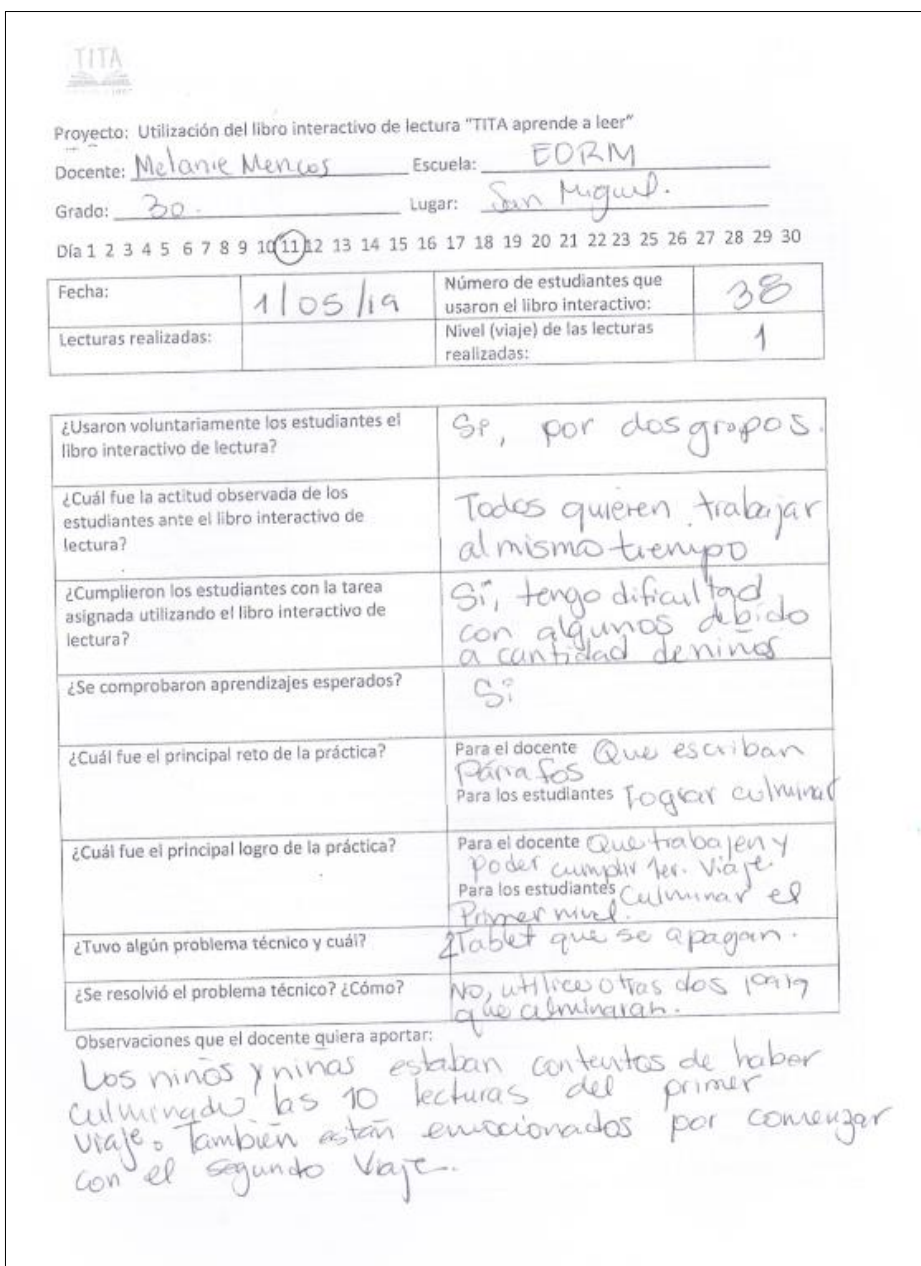 TITA
Proyecto: Utilización del libro interactivo de lectura "TITA aprende a leer"
Docente: Melanie Mencos Escuela: EORM
Grado: 3o. Lugar: San Miguel.
Día 1 2 3 4 5 6 7 8 9 10 11 12 13 14 15 16 17 18 19 20 21 22 23 25 26 27 28 29 30
Fecha: 1/05/19 Número de estudiantes que usaron el libro interactivo: 38
Lecturas realizadas: Nivel (viaje) de las lecturas realizadas: 1
¿Usaron voluntariamente los estudiantes el
libro interactivo de lectura?
Si, por dos grupos.
¿Cuál fue la actitud observada de los
estudiantes ante el libro interactivo de
lectura?
Todos quieren trabajar
al mismo tiempo
¿Cumplieron los estudiantes con la tarea
asignada utilizando el libro interactivo de
lectura?
Sí, tengo dificultad
con algunos debido
a cantidad de niños
¿Se comprobaron aprendizajes esperados?
Si
¿Cuál fue el principal reto de la práctica?
Para el docente Que escriban
Párrafos
Para los estudiantes Lograr culminar
¿Cuál fue el principal logro de la práctica?
Para el docente Que trabajen y
poder cumplir 1er. Viaje
Para los estudiantes Culminar el
Primer nivel.
¿Tuvo algún problema técnico y cuál?
2 Tablet que se apagan.
¿Se resolvió el problema técnico? ¿Cómo?
No, utilice otras dos para
que culminaran.
Observaciones que el docente quiera aportar:
Los niños y niñas estaban contentos de haber
culminado las 10 lecturas del primer
viaje. También están emocionados por comenzar
con el segundo Viaje.